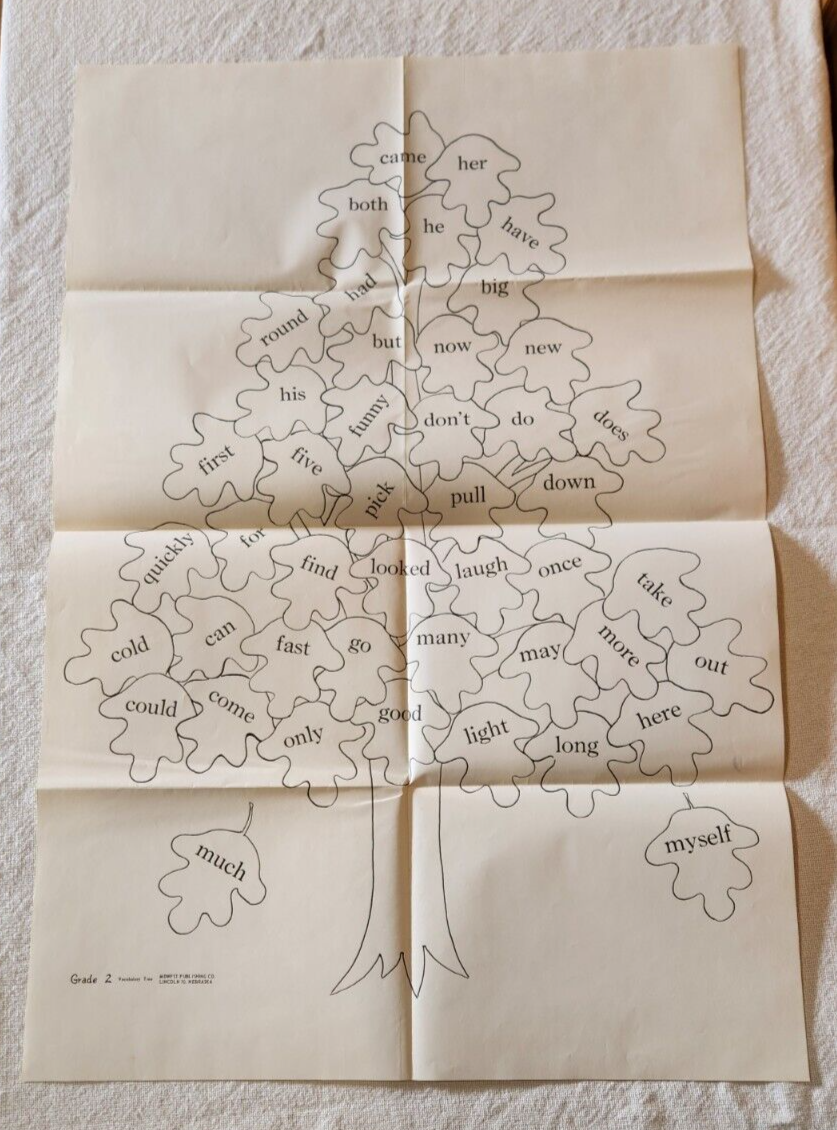 came
her
both
he
have
had
big
round
but
now
new
his
funny
don't
do
does
first
five
pick
pull
down
quickly
for
find
looked
laugh
once
take
cold
can
fast
go
many
may
more
out
could
come
only
good
light
long
here
much
myself
Grade 2 Vocabulary Tree
PUBLISHING CO.
LINCOLN, NEBRASKA